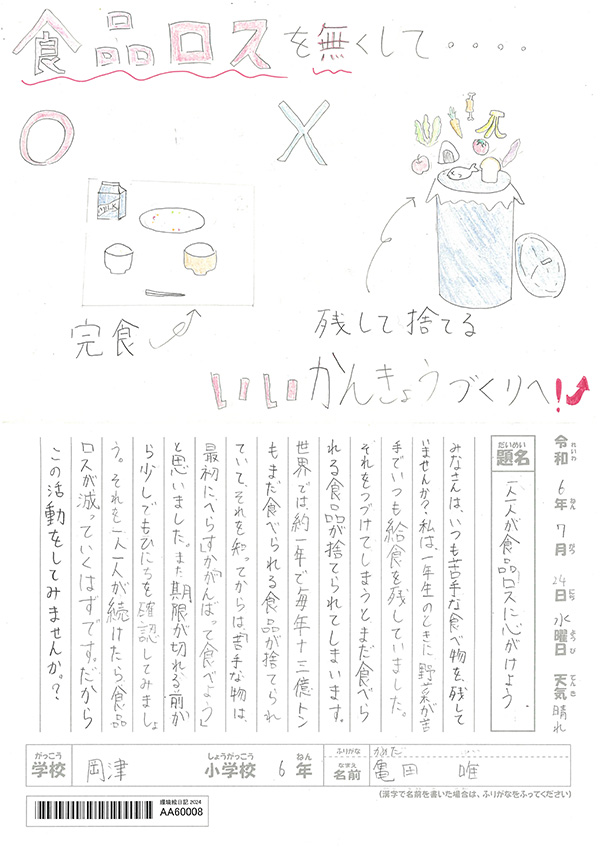 食品ロスを無くして・・・・
○
×
MILK
完食
残して捨てる
いいかんきょうづくりへ!
令和6年7月24日水曜日 天気 晴れ
れいわ ねん がつ にち ようび てんき
だいめい
題名
一人一人が食品ロスに心がけよう
みなさんは、いつも苦手な食べ物を、残して
いませんか?私は、一年生のときに野菜が苦
手でいつも給食を残していました。
それをつづけてしまうとまだ食べら
れる食品が捨てられてしまいます。
世界では、約一年で毎年十三億トン
もまだ食べられる食品が捨てられ
ていて、それを知ってからは、「苦手な物は、
最初にへらすかがんばって食べよう」
と思いました。また期限が切れる前か
ら少しでもひにちを確認してみましょ
う。それを一人一人が続けたら食品
ロスが減っていくはずです。だから
この活動をしてみませんか。?
がっこう しょうがっこう ねん
学校 岡津 小学校 6年
ふりがな かめだ
なまえ
名前 亀田 唯
(漢字で名前を書いた場合は、ふりがなをふってください)
環境絵日記2024
AA60008